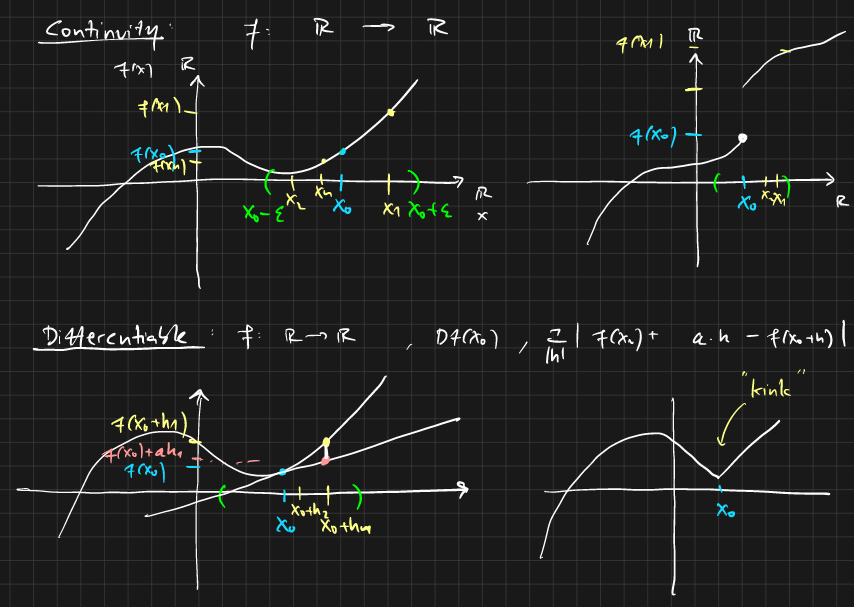 Continuity: f: ℝ → ℝ
f(x) ℝ
f(x₁)
f(x₀)
f(xₙ)
x₀-ε x₂ xₙ x₀ x₁ x₀+ε
ℝ
x
f(x₁) ℝ
f(x₀)
x₀ x₂ x₁ ℝ
Differentiable: f: ℝ → ℝ , Df(x₀) , 1/|h| | f(x₀) + a·h - f(x₀+h) |
f(x₀+h₁)
f(x₀)+ah₁
f(x₀)
x₀ x₀+h₂ x₀+h₁
"kink"
x₀